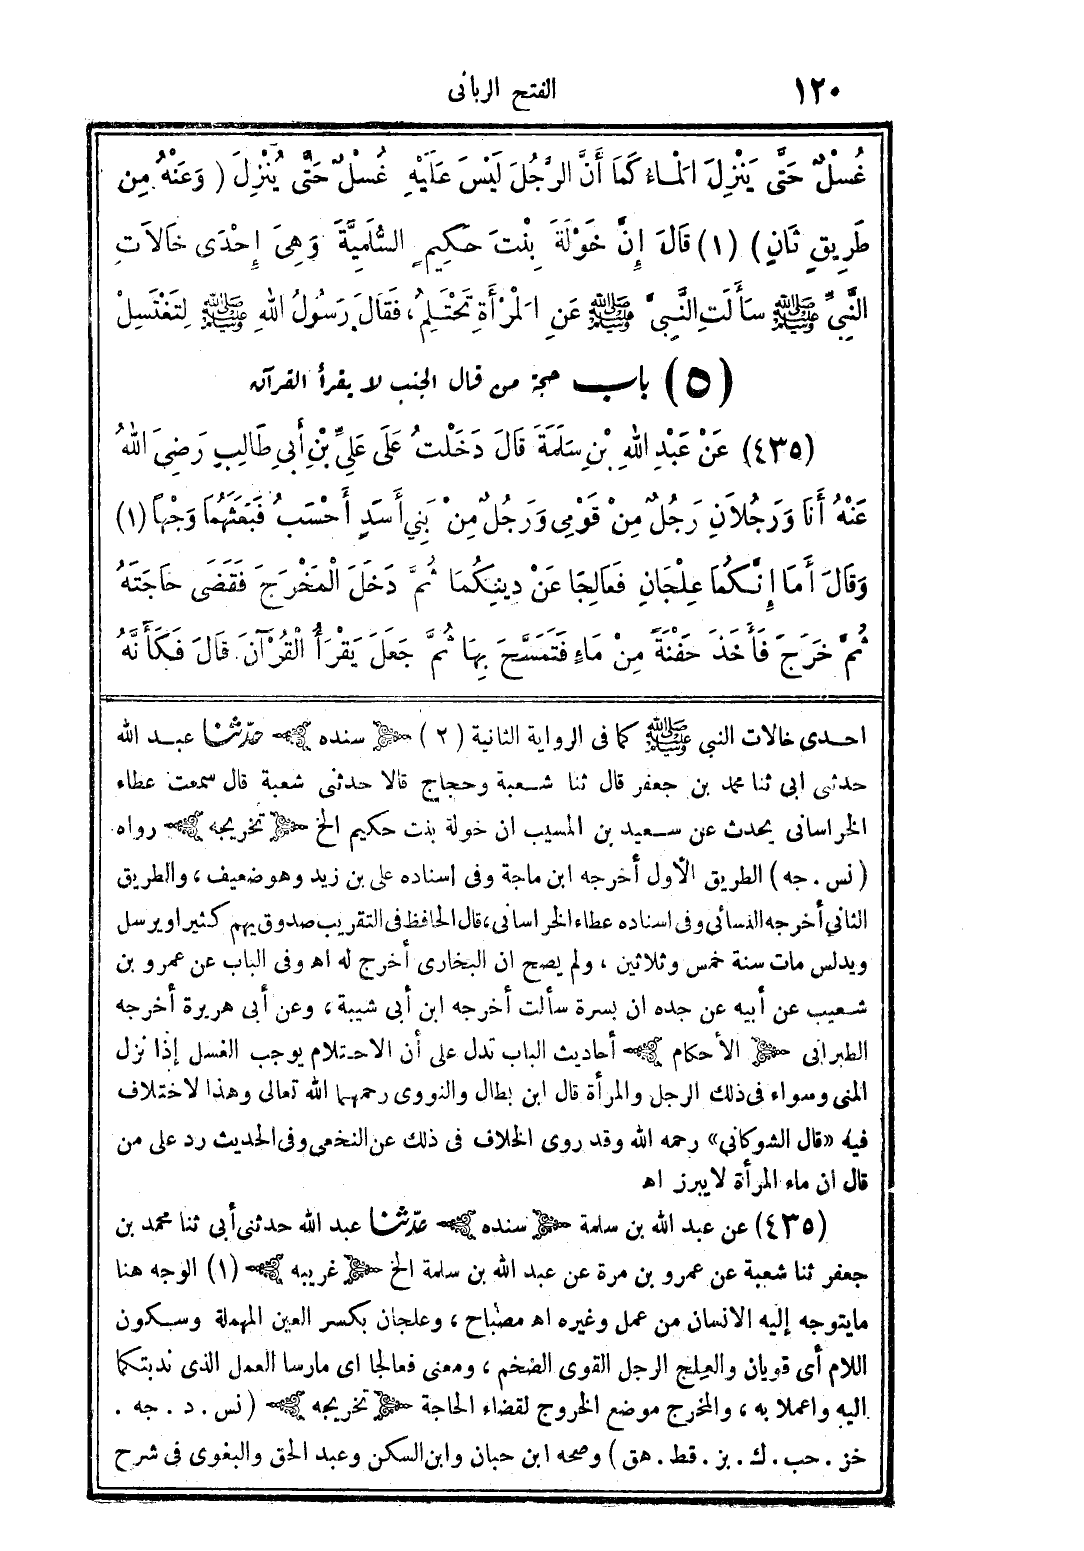 ١٢٠ الفتح الربانى
غُسْلٌ حَتَّى يَنْزِلَ الْمَاءُ كَمَا أَنَّ الرَّجُلَ لَيْسَ عَلَيْهِ غُسْلٌ حَتَّى يُنْزِلَ ( وَعَنْهُ مِن
طَرِيقٍ ثَانٍ ) (١) قَالَ إِنَّ خَوْلَةَ بِنْتَ حَكِيمٍ السُّلَمِيَّةَ وَهِيَ إِحْدَى خَالَاتِ
النَّبِيِّ ﷺ سَأَلَتِ النَّبِيَّ ﷺ عَنِ الْمَرْأَةِ تَحْتَلِمُ، فَقَالَ رَسُولُ اللهِ ﷺ لِتَغْتَسِلْ
(٥) باب حجة من قال الجنب لا يقرأ القرآن
(٤٣٥) عَنْ عَبْدِ اللهِ بْنِ سَلَمَةَ قَالَ دَخَلْتُ عَلَى عَلِيِّ بْنِ أَبِى طَالِبٍ رَضِىَ اللهُ
عَنْهُ أَنَا وَرَجُلَانِ رَجُلٌ مِنْ قَوْمِى وَرَجُلٌ مِنْ بَنِي أَسَدٍ أَحْسَبُ فَبَعَثَهُمَا وَجْهًا (١)
وَقَالَ أَمَا إِنَّكُمَا عِلْجَانِ فَعَالِجَا عَنْ دِينِكُمَا ثُمَّ دَخَلَ الْمَخْرَجَ فَقَضَى حَاجَتَهُ
ثُمَّ خَرَجَ فَأَخَذَ حَفْنَةً مِنْ مَاءٍ فَتَمَسَّحَ بِهَا ثُمَّ جَعَلَ يَقْرَأُ الْقُرْآنَ قَالَ فَكَأَنَّهُ
احدى خالات النبي ﷺ كما فى الرواية الثانية (٢) ﴿ سنده ﴾ حدثنا عبد الله
حدثى ابي ثنا محمد بن جعفر قال ثنا شعبة وحجاج قالا حدثنى شعبة قال سمعت عطاء
الخراسانى يحدث عن سعيد بن المسيب ان خولة بنت حكيم الخ ﴿ تخريجه ﴾ رواه
( نس . جه ) الطريق الأول أخرجه ابن ماجة وفى اسناده على بن زيد وهو ضعيف ، والطريق
الثاني أخرجه النسائي وفى اسناده عطاء الخراسانى ، قال الحافظ فى التقريب صدوق يهم كثيرا ويرسل
ويدلس مات سنة خمس وثلاثين ، ولم يصح ان البخارى أخرج له اه وفى الباب عن عمرو بن
شعيب عن أبيه عن جده ان بسرة سألت أخرجه ابن أبي شيبة ، وعن أبى هريرة أخرجه
الطبرانى ﴿ الأحكام ﴾ أحاديث الباب تدل على أن الاحتلام يوجب الغسل إذا نزل
المنى وسواء فى ذلك الرجل والمرأة قال ابن بطال والنووى رحمهما الله تعالى وهذا لاختلاف
فيه «قال الشوكاني» رحمه الله وقد روى الخلاف فى ذلك عن النخعى وفى الحديث رد على من
قال ان ماء المرأة لا يبرز اه
(٤٣٥) عن عبد الله بن سلمة ﴿ سنده ﴾ حدثنا عبد الله حدثنى أبي ثنا محمد بن
جعفر ثنا شعبة عن عمرو بن مرة عن عبد الله بن سلمة الخ ﴿ غريبه ﴾ (١) الوجه هنا
مايتوجه إليه الانسان من عمل وغيره اه مصباح ، وعلجان بكسر العين المهملة وسكون
اللام أى قويان والعلج الرجل القوى الضخم ، ومعنى فعالجا اى مارسا العمل الذى ندبتكما
اليه واعملا به ، والمخرج موضع الخروج لقضاء الحاجة ﴿ تخريجه ﴾ ( نس . د . جه .
خز . حب . ك . بز . قط . هق ) وصححه ابن حبان وابن السكن وعبد الحق والبغوى فى شرح